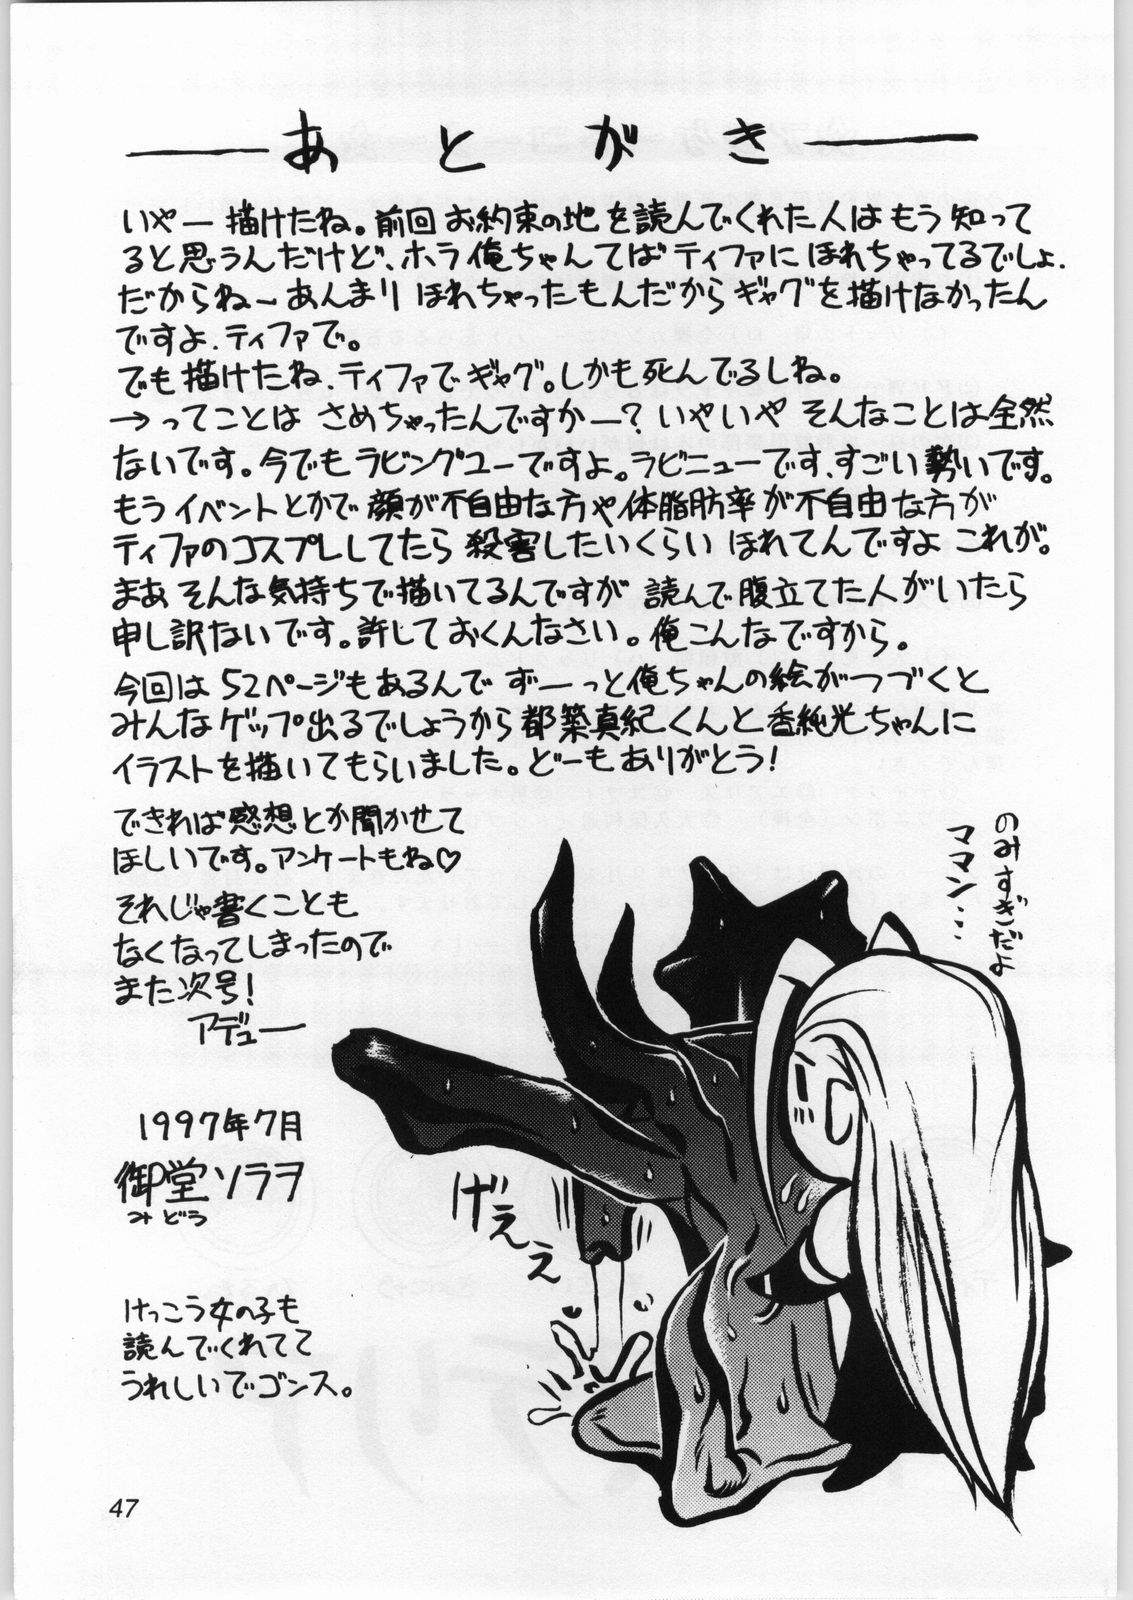 あとがき
いやー描けたね。前回お約束の地を読んでくれた人はもう知って
ると思うんだけど、ホラ俺ちゃんてばティファにほれちゃってるでしょ.
だからねーあんまりほれちゃったもんだからギャグを描けなかったん
ですよ.ティファで。
でも描けたね、ティファでギャグ。しかも死んでるしね。
→ってことは さめちゃったんですかー?いやいや そんなことは全然
ないです。今でもラビングユーですよ。ラビニューです、すごい勢いです。
もうイベントとかで顔が不自由な方や体脂肪率が不自由な方が
ティファのコスプレしてたら殺害したいくらい ほれてんですよ これが。
まあそんな気持ちで描いてるんですが 読んで腹立てた人がいたら
申し訳ないです。許しておくんなさい。俺こんなですから。
今回は52ページもあるんで ずーっと俺ちゃんの絵がつづくと
みんなゲップ出るでしょうから都築真紀くんと香純光ちゃんに
イラストを描いてもらいました。どーもありがとう!
できれば感想とか聞かせて
ほしいです。アンケートもね♡
それじゃ書くことも
なくなってしまったので
また次号!
アデュー
のみすぎだよ
ママン…
げえぇぇ
1997年7月
御堂ソラヲ
みどう
けっこう女の子も
読んでくれてて
うれしいでゴンス。
47